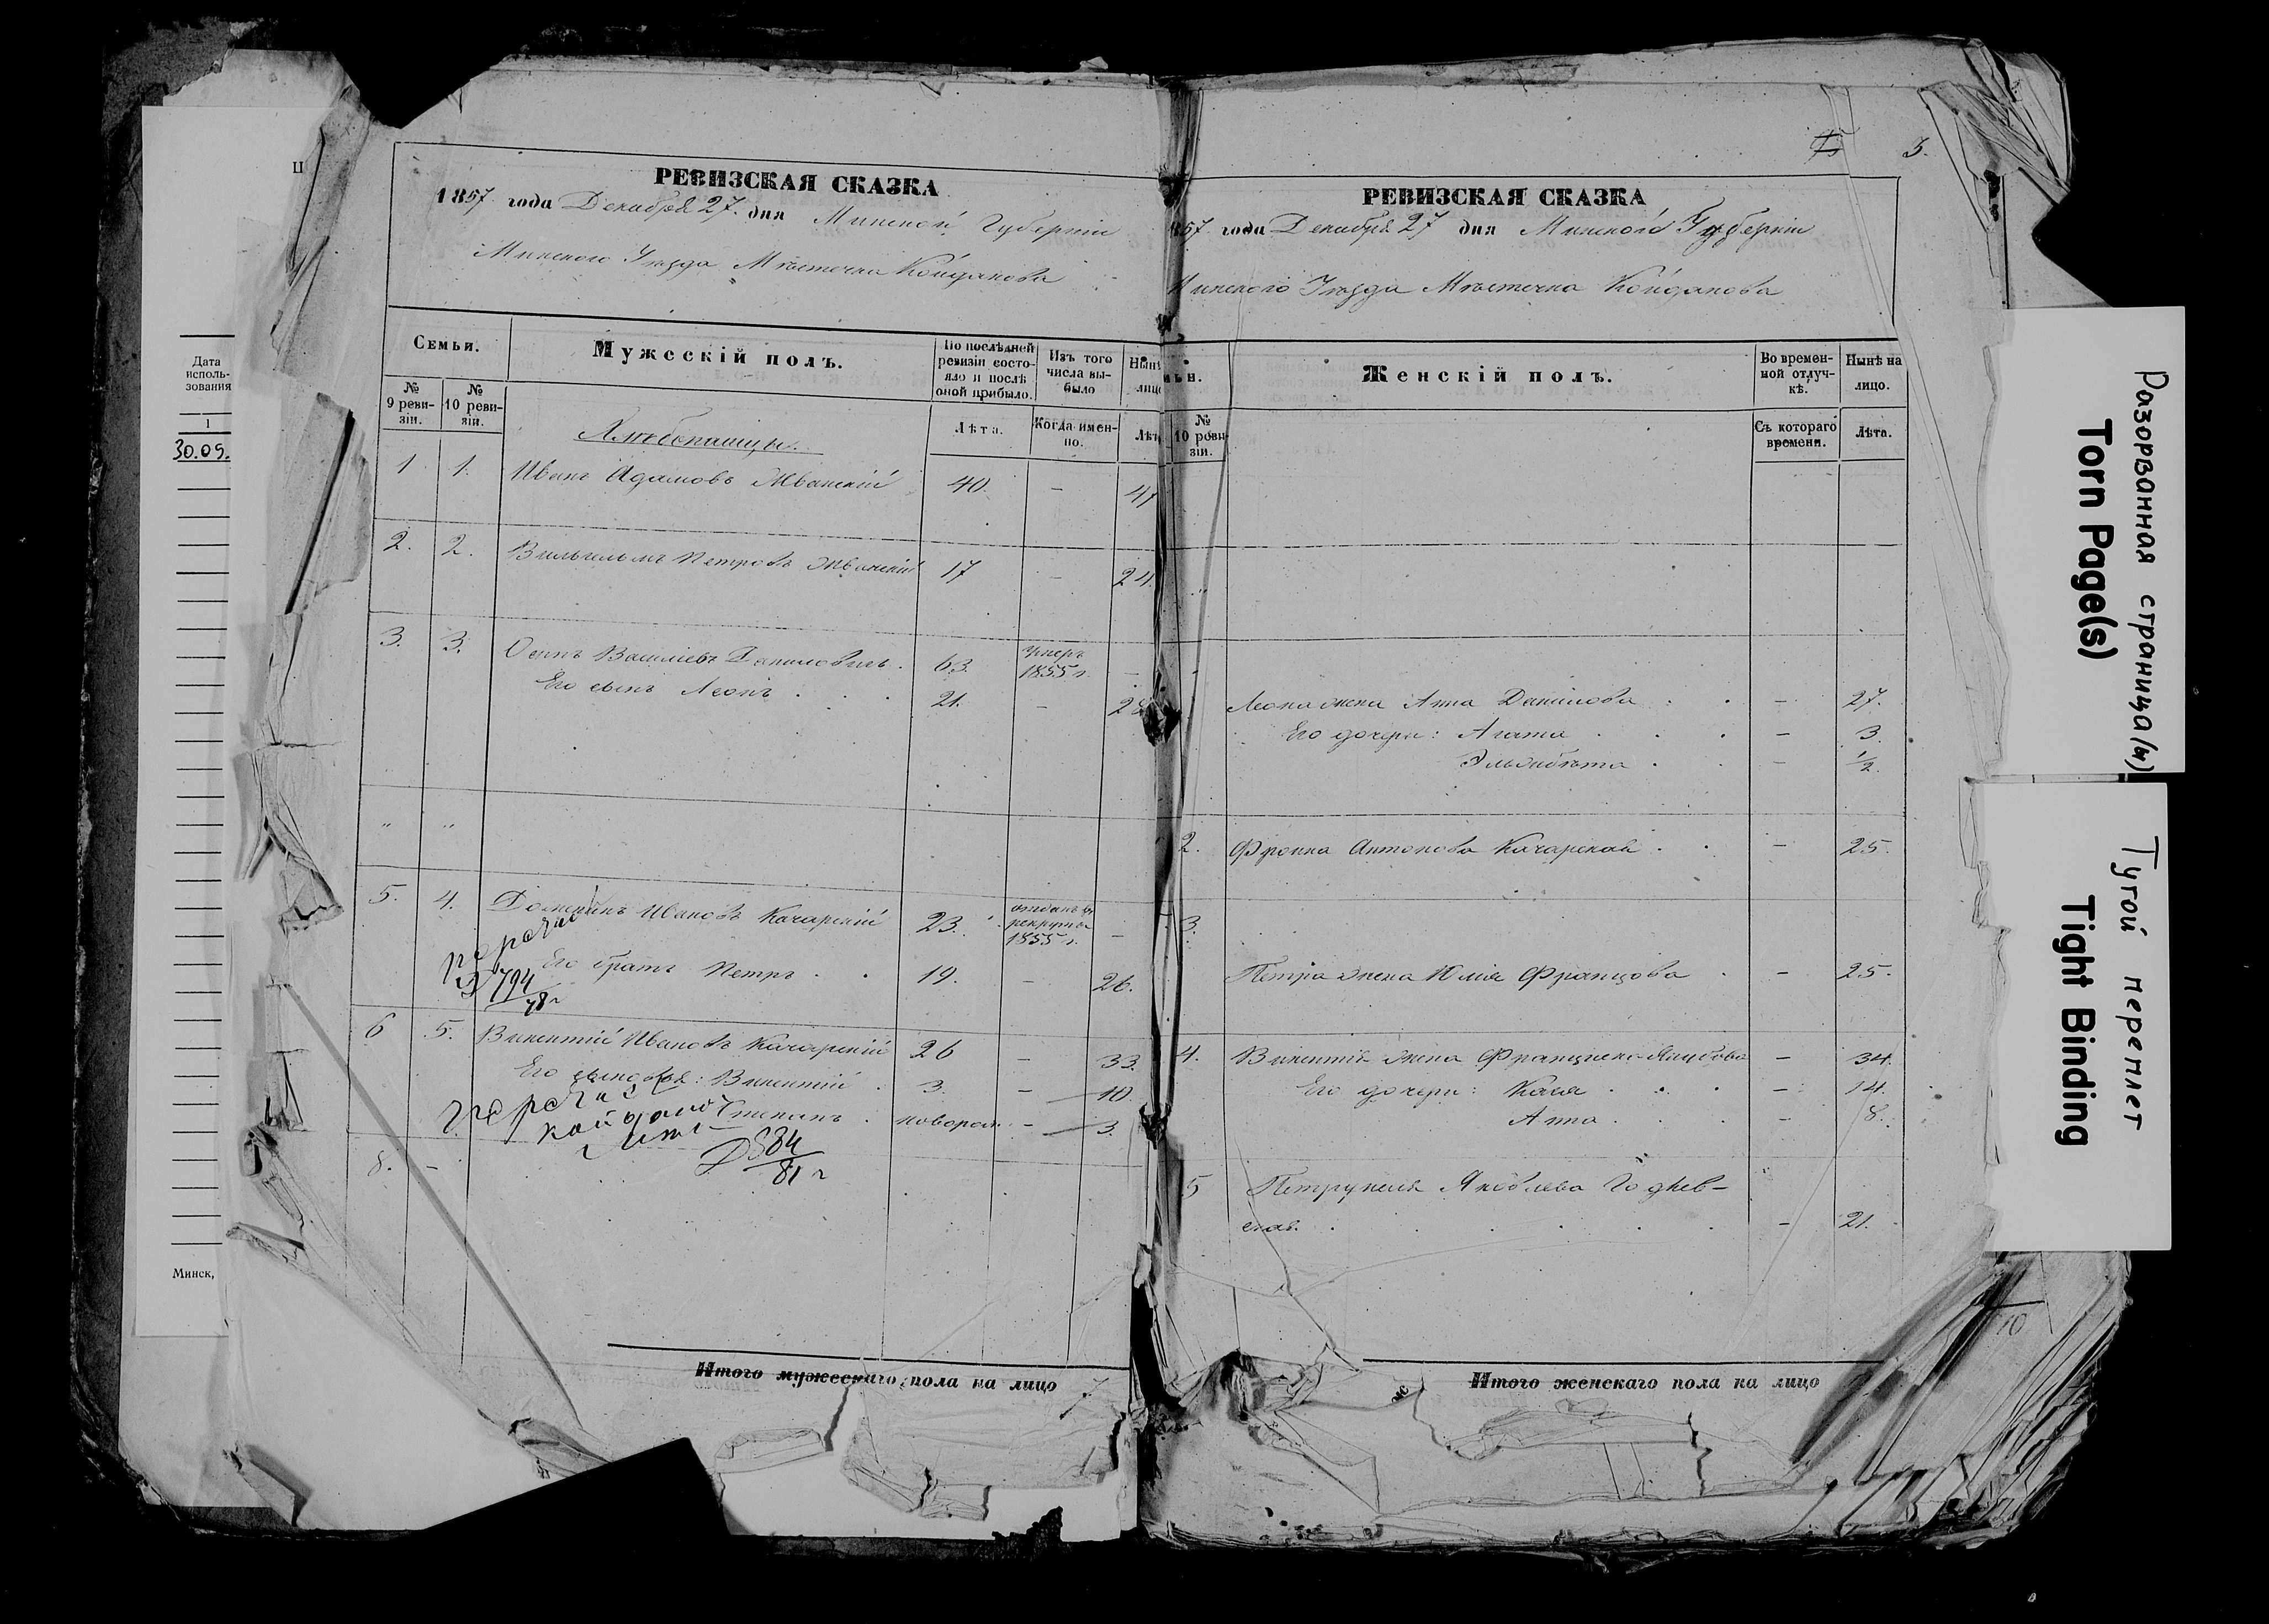 РЕВИЗСКАЯ СКАЗКА
1857 года Декабря 27. дня Минской Губерніи
Минского Уѣзда Мѣстечка Койданова
Семьи.
№ 9 ревизіи.
№ 10 ревизіи.
Мужескій полъ.
По послѣдней ревизіи состояло и послѣ оной прибыло.
Изъ того числа выбыло
Нынѣ лицо
Лѣта.
Когда именно.
Лѣт
1. 1. Иванъ Адамовъ Жванскій 40. – 47
2. 2. Вильгельмъ Петровъ Жванскій 17 – 24.
3. 3. Осипъ Василіевъ Даниловичъ. 63. умеръ 1855 г. –
Его сынъ Леонъ . . . 21. – 28
" "
5. 4. Доминикъ Ивановъ Качарскій 23. отданъ въ рекруты 1855 г. –
Его братъ Петръ . . 19. – 26.
794
78 г
6 5. Викентій Ивановъ Качарскій 26 – 33.
Его сыновья: Викентій . 3. – 10.
Степанъ . новорож. – 3.
584
81 г
8. –
Итого мужескаго пола на лицо 7
5.
РЕВИЗСКАЯ СКАЗКА
857 года Декабря 27 дня Минской Губерніи
Минского Уѣзда Мѣстечка Койданова
ьи.
№ 10 ревизіи.
Женскій полъ.
Во временной отлучкѣ.
Нынѣ на лицо.
Съ котораго времени.
Лѣта.
Леона жена Анна Данилова . . – 27.
Его дочери: Агата . . . – 3.
Эльжбѣта . – 1/2.
2. Антонова Качарская . . – 25.
3.
Петра жена Юлія Францова . – 25.
4. Викентія жена Франциска Якубова – 34.
Его дочери: Кася . . . – 14.
Анна . . . – 8.
5 Петрунеля Яковлева
ская. . . . . . – 21.
Итого женскаго пола на лицо
10
Дата использования
1
30.05.
Минск,
Разорванная страница(ы)
Torn Page(s)
Тугой переплет
Tight Binding